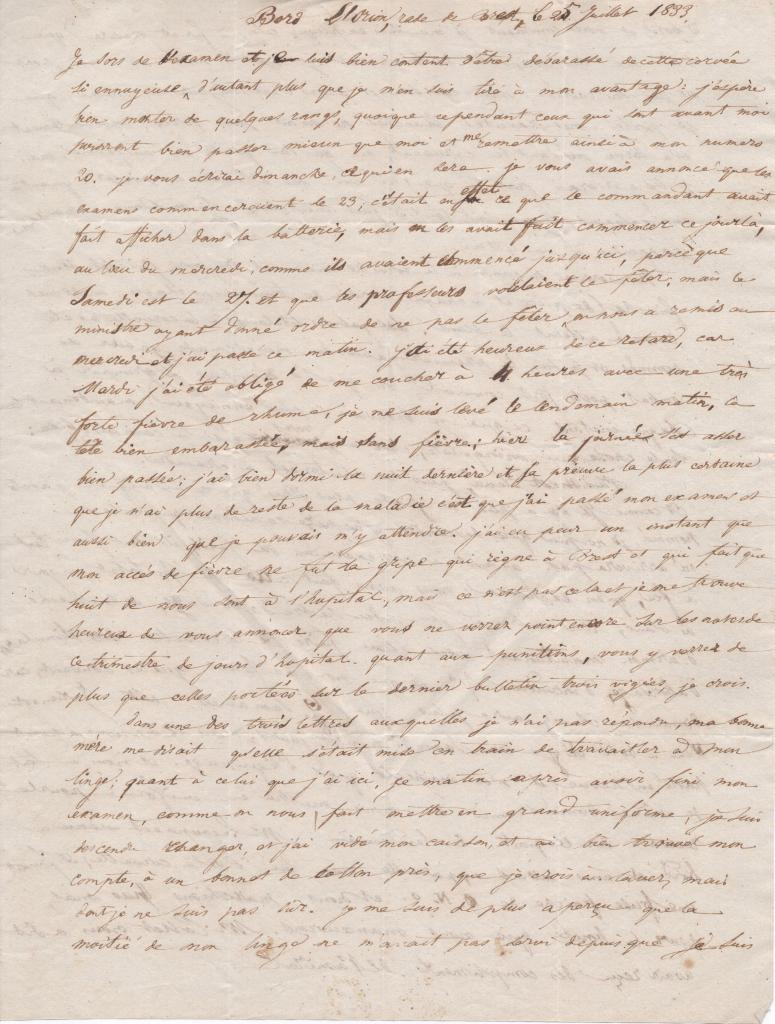 Bord l'Orion, rade de Brest, le 25 Juillet 1833.
Je sors de l'examen et je suis bien content d'être débarassé de cette corvée
si ennuyeuse, d'autant plus que je m'en suis tiré à mon avantage: j'espère
bien monter de quelques rangs, quoique cependant ceux qui sont avant moi
peuvent bien passer mieux que moi et me remettre ainsi à mon numero
20. je vous écrirai dimanche, ce qui en sera. je vous avais annoncé que les
examens commenceroient le 23, c'était en effet ce que le commandant avait
fait afficher dans la batterie, mais on les avait fait commencer ce jour là,
au lieu du mercredi, comme ils avaient commencé jusqu'ici, parceque
Samedi est le 27. et que les professeurs voulaient le fêter; mais le
ministre ayant donné ordre de ne pas le fêter, on nous a remis au
mercredi et j'ai passé ce matin. j'ai été heureux de ce retard, car
Mardi j'ai été obligé de me coucher à 4 heures avec une très
forte fièvre de rhume, je me suis levé le lendemain matin, la
tête bien embarassée, mais sans fièvre; hier la journée s'est assez
bien passée; j'ai bien dormi la nuit dernière et la preuve la plus certaine
que je n'ai plus de reste de la maladie c'est que j'ai passé mon examen et
aussi bien que je pouvais m'y attendre. j'ai eu peur un instant que
mon accès de fièvre ne fut la gripe qui règne à Brest et qui fait que
huit de nous sont à l'hopital, mais ce n'est pas cela et je me trouve
heureux de vous annoncer que vous ne verrez point encore sur les notes de
ce trimestre de jours d'hopital. quant aux punitions, vous y verrez de
plus que celles portées sur le dernier bulletin trois vigies, je crois.
Dans une des trois lettres auxquelles je n'ai pas repondu, ma bonne
mère me disait qu'elle s'était mise en train de travailler à mon
linge; quant à celui que j'ai ici, ce matin après avoir fini mon
examen, comme on nous fait mettre en grand uniforme, je suis
descendu changer, et j'ai vidé mon caisson, et ai bien trouvé mon
compte, à un bonnet de coton près, que je crois à laver, mais
dont je ne suis pas sûr. je me suis de plus aperçu que la
moitié de mon linge ne m'avait pas servi depuis que je suis